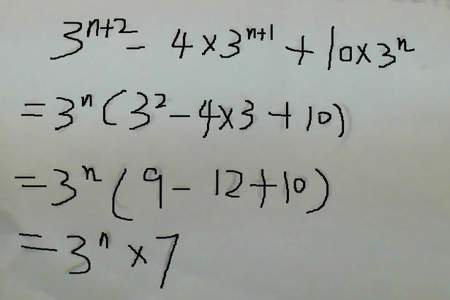 3ⁿ⁺² - 4 × 3ⁿ⁺¹ + 10 × 3ⁿ
= 3ⁿ (3² - 4 × 3 + 10)
= 3ⁿ (9 - 12 + 10)
= 3ⁿ × 7